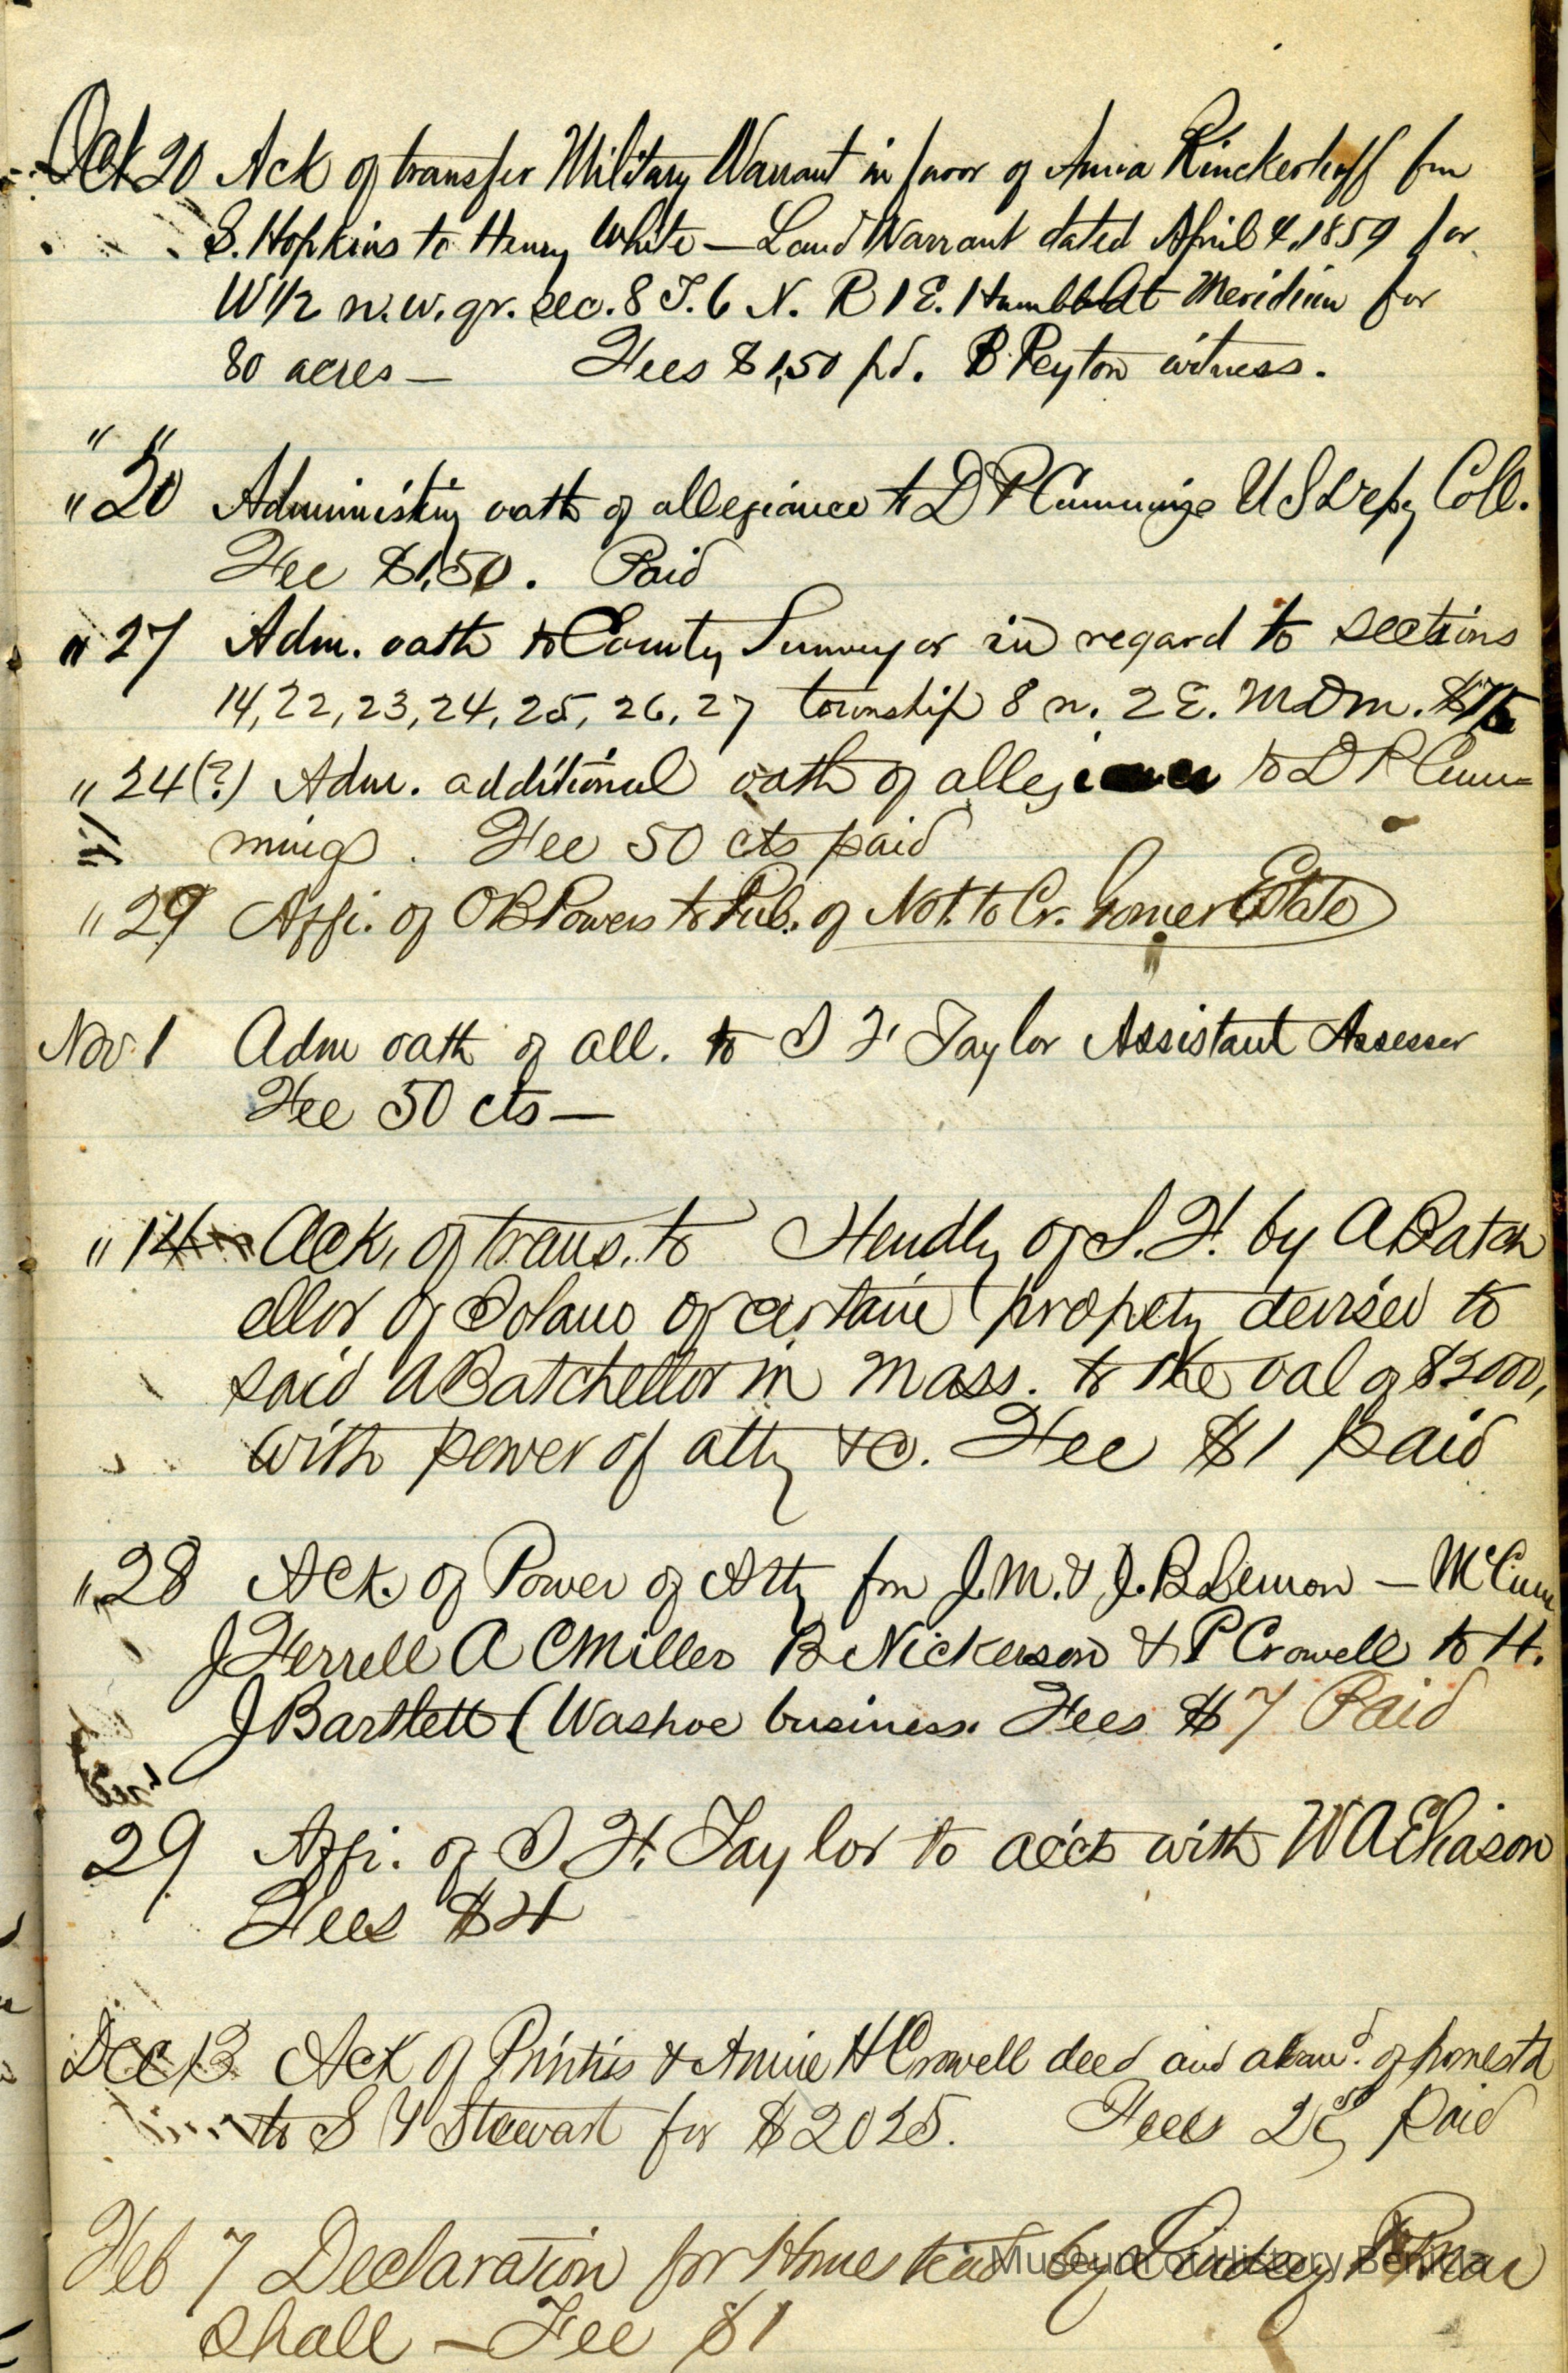 Oct 20 Ack of transfer Military Warrant in favor of Anna Rinckerhoff fm
S. Hopkins to Henry White — Land Warrant dated April 4, 1859 for
W 1/2 n.w. qr. sec. 8 T. 6 N. R 1 E. Humboldt Meridian for
80 acres — Fees $1,50 pd. B Peyton witness.
" "
" 20 Administing oath of allegiance to D P Cummings U S Depy Coll.
Fee $1,50. Paid
" 27 Adm. oath to County Surveyor in regard to sections
14, 22, 23, 24, 25, 26, 27 township 8 n. 2 E. M D m.
" 24(?) Adm. additional oath of allegiance to D P Cum=
mings. Fee 50 cts paid
" 29 Affi. of O B Powers to Pub. of Not. to Cr. Estate
Nov 1 Adm oath of all. to S F Taylor Assistant Assessor
Fee 50 cts —
" 14 Ack. of trans. to Hendly of S. F. by A Batch
ellor of Solano of certain propety devised to
said A Batchellor in Mass. to the val of $2000,
with power of atty &c. Fee $1 paid
" 28 Ack. of Power of Atty fm J. M. & J. B Lemon — McCune
J Ferrell A C Miller B Nickerson & P Crowell to H.
J Bartlett (Washoe business. Fees $7 Paid
29 Affi. of S F. Taylor to acct with W A Eliason
Fees $4
Dec 13 Ack of & Annie H Crowell deed and aband. of homestd
to S Y Stewart for $2025. Fees 2 50 paid
Feb 7 Declaration for Homestead by Lindsey P Mar
shall — Fee $1
Museum of History Benicia